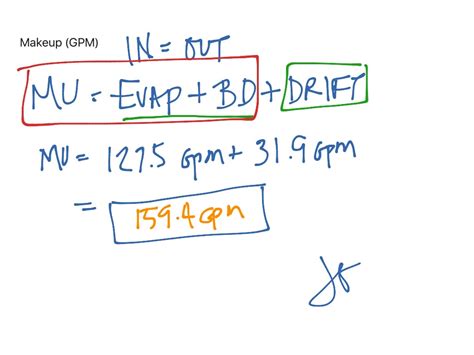 Makeup (GPM)
IN = OUT
MU = EVAP + BD + DRIFT
MU = 127.5 gpm + 31.9 gpm
= 159.4 gpm